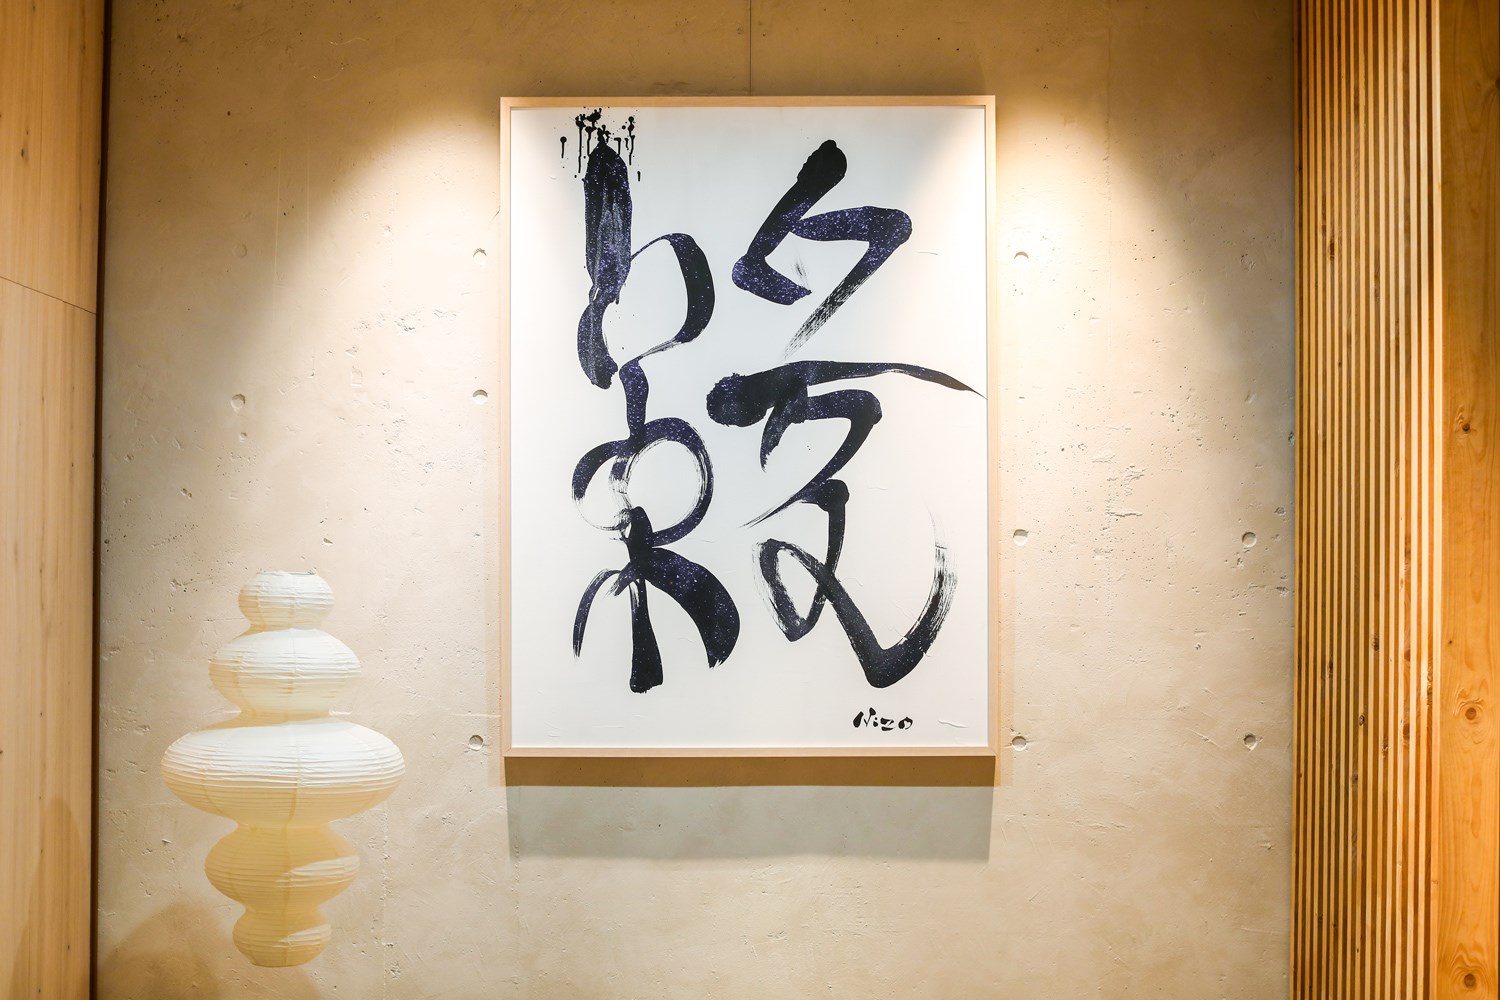 縁
Nizo